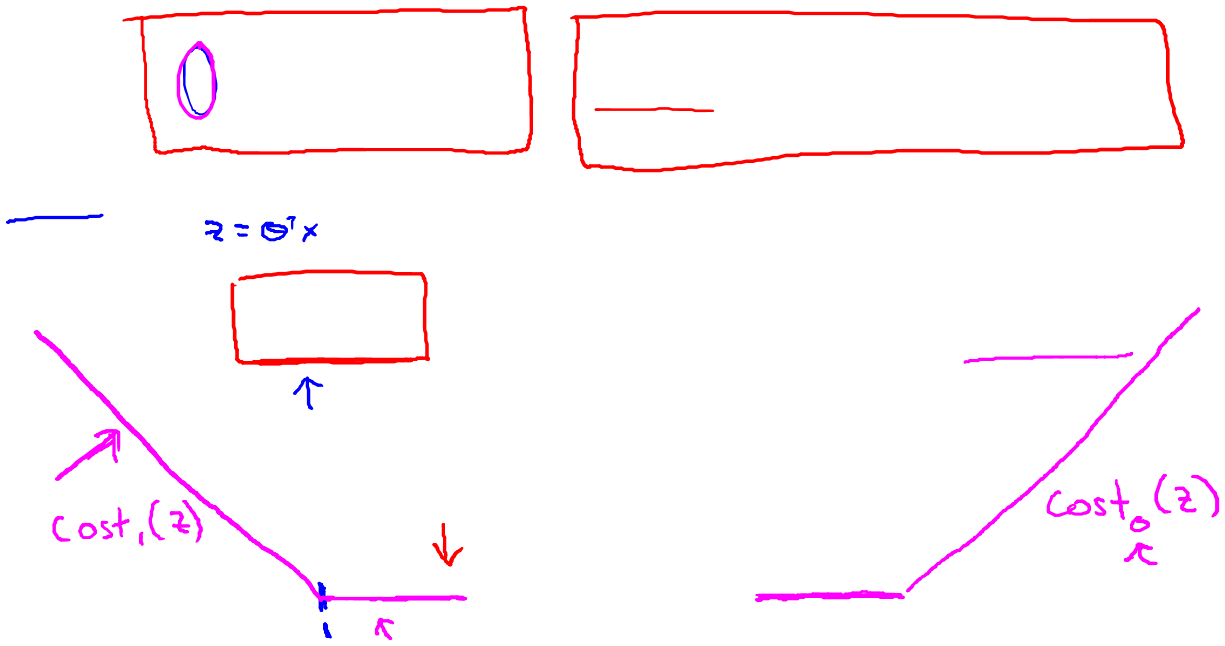 z = θᵀx
cost₁(z)
cost₀(z)
1